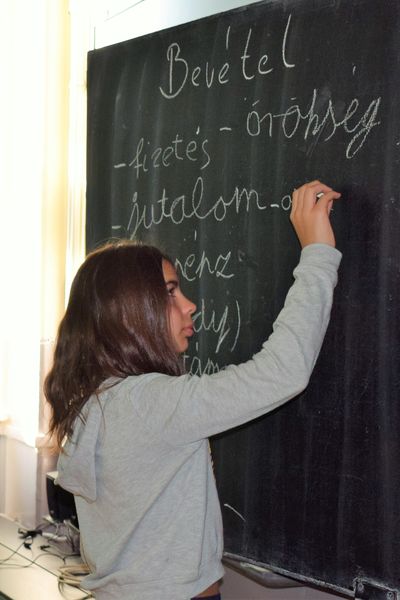 Bevétel
- fizetés - örökség
- jutalom -
pénz
díj)